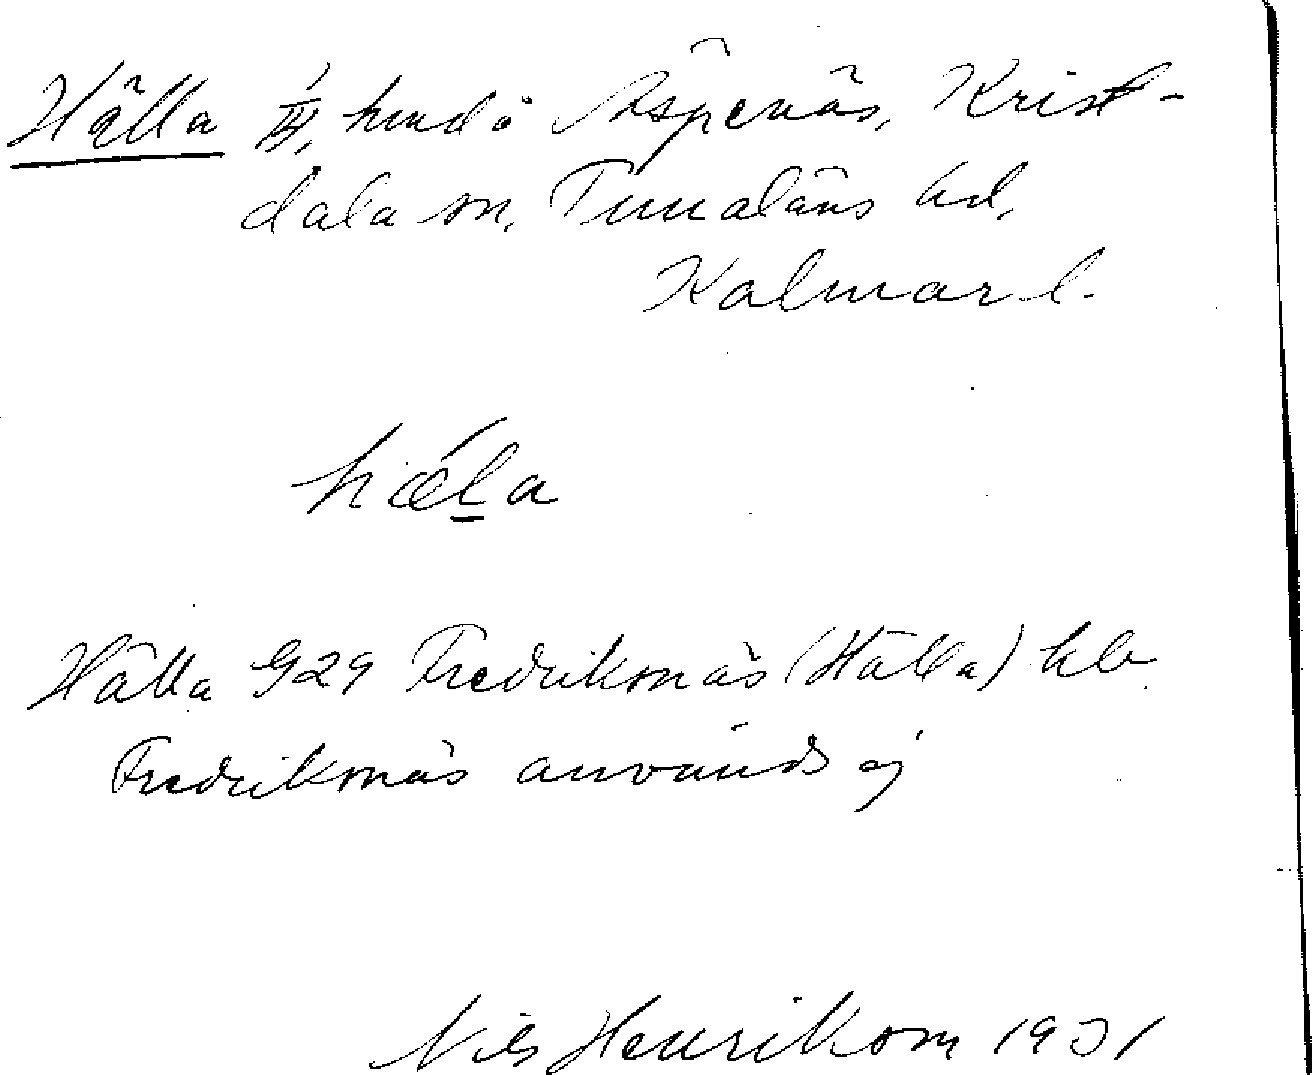 Hälla III, hmd å Äspenäs, Krist-
dala sn, Tunaläns hd,
Kalmar l.
hæ̀l̠a
Hälla G29 Fredriksnäs (Hälla) hb
Fredriksnäs används ej
Nils Henrikson 1931